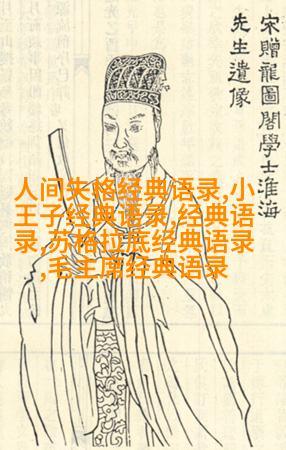 宋贈龍圖閣學士淮海
先生遺像
人间失格经典语录,小
王子经典语录,经典语
录,苏格拉底经典语录
,毛主席经典语录